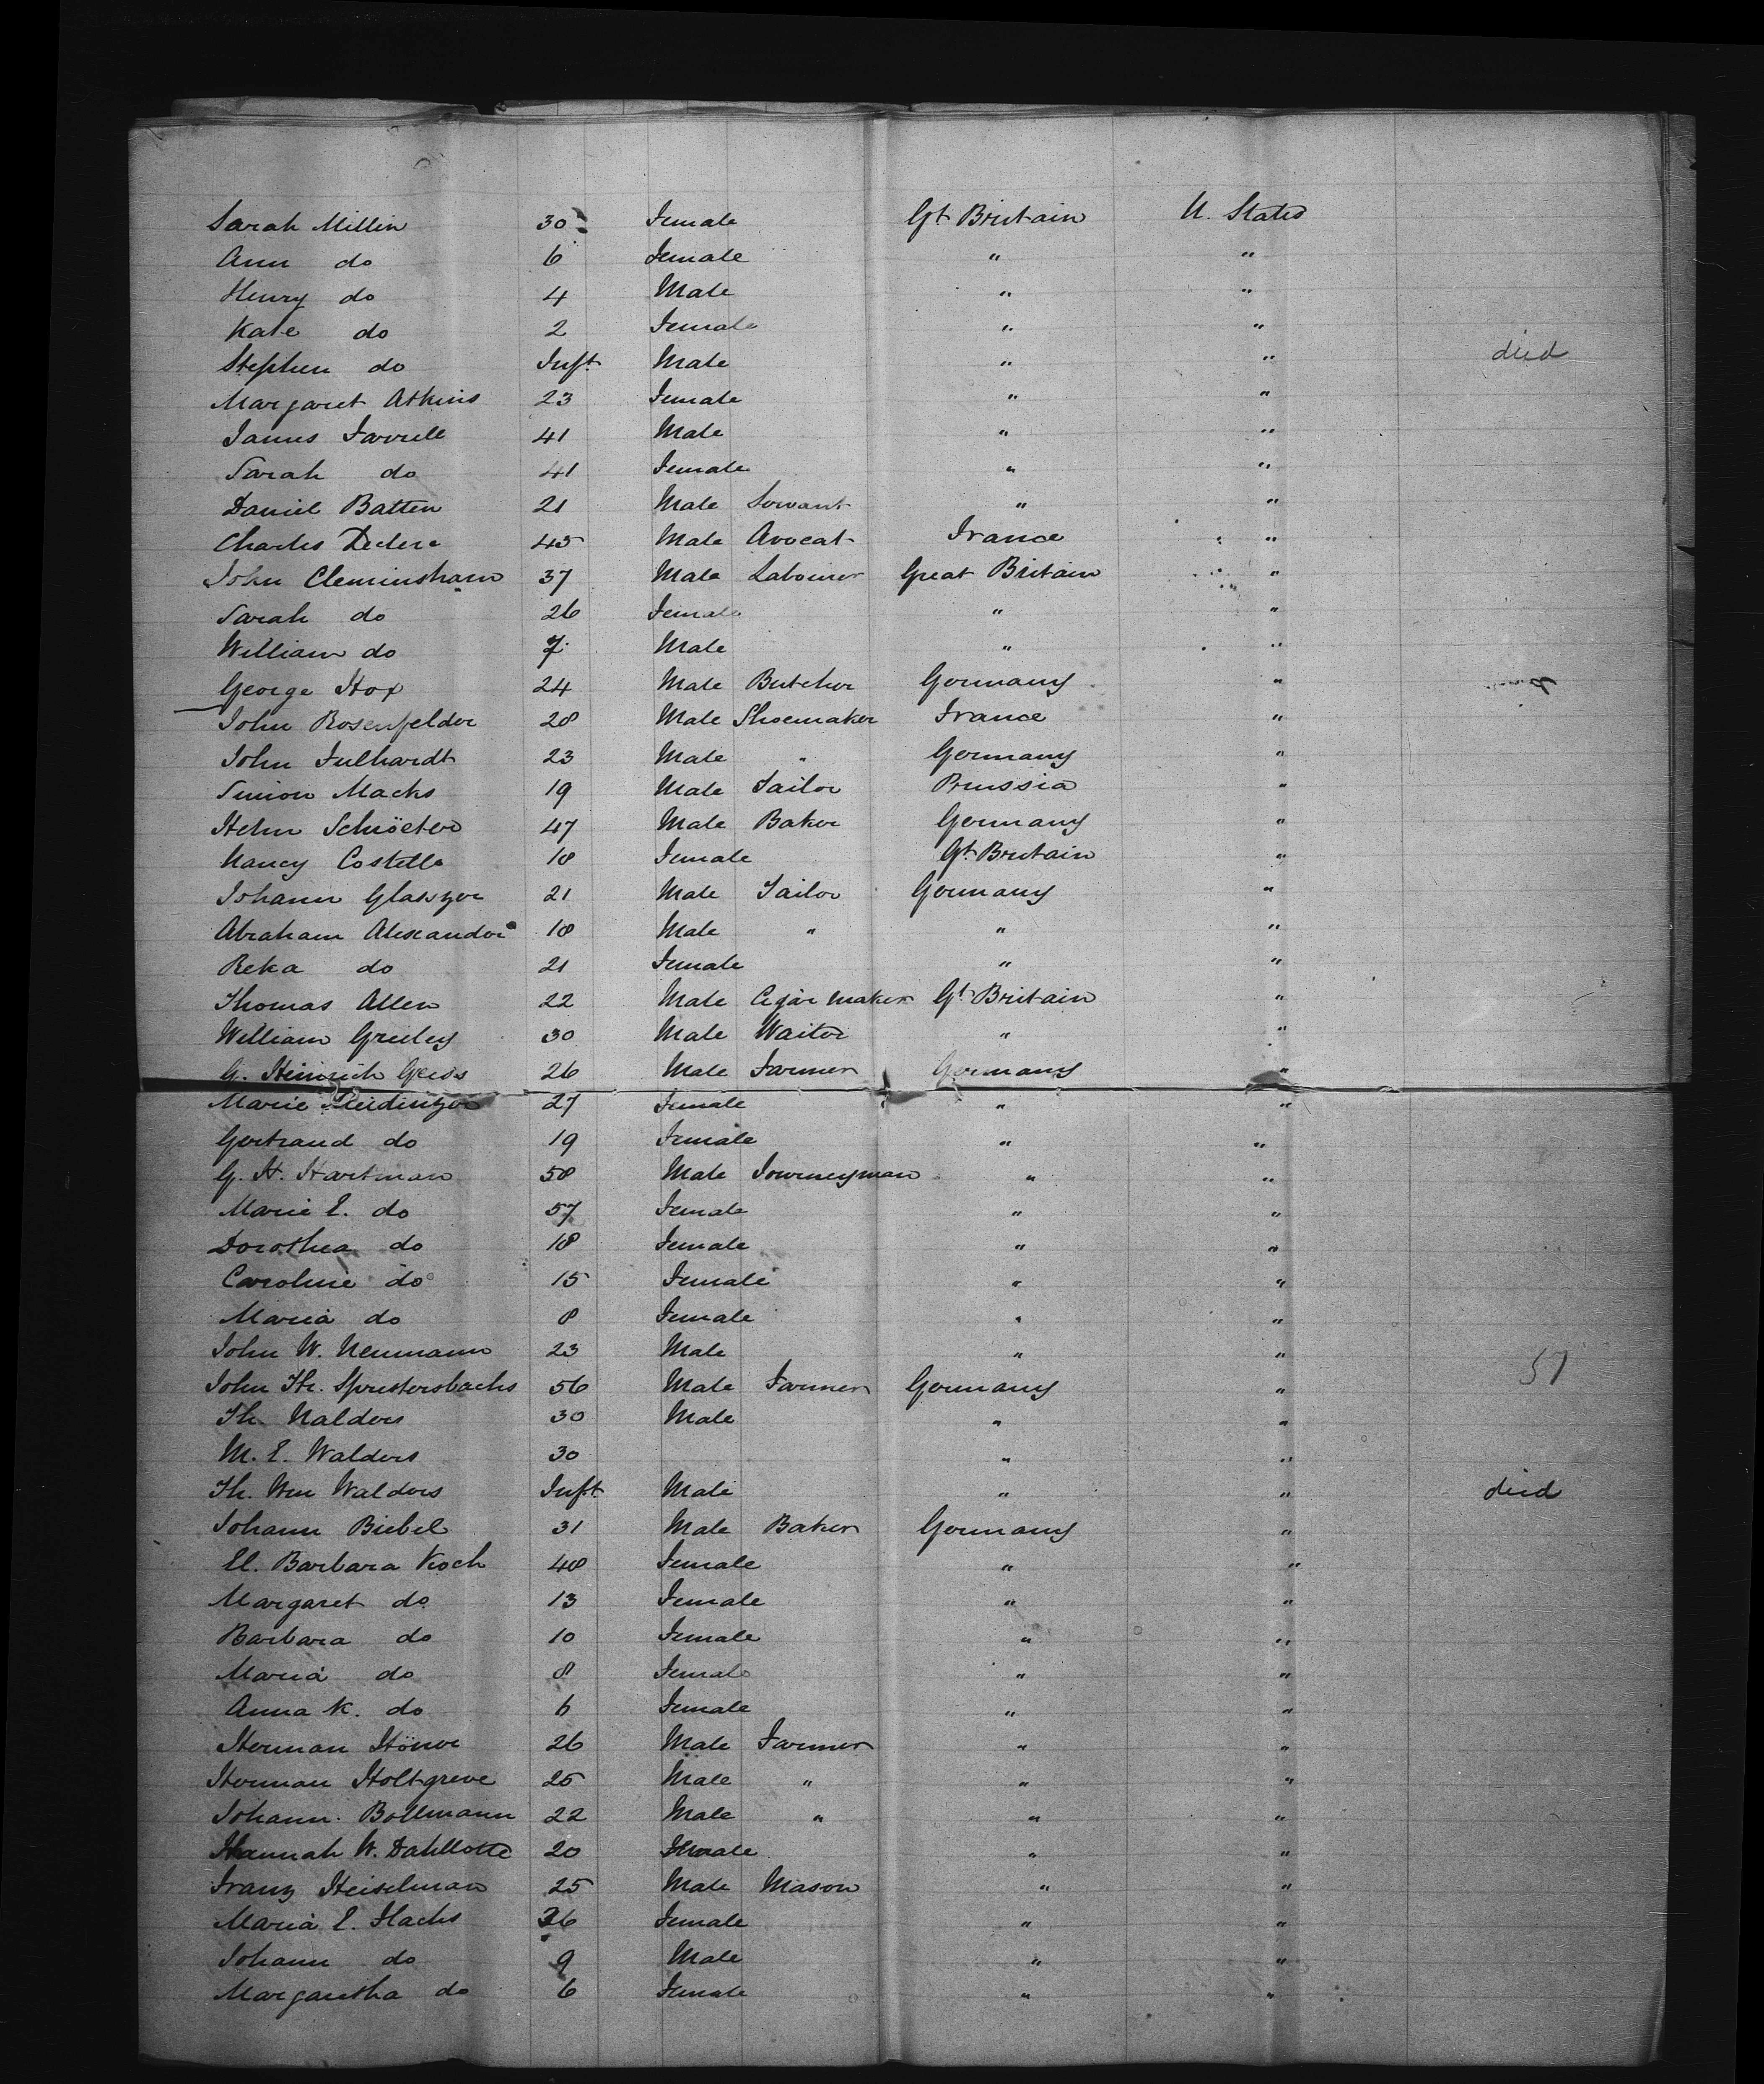 Sarah Millin 30 Female Gt Britain U. States
Ann do 6 Female " "
Henry do 4 Male " "
Kate do 2 Female " "
Stephen do Inft Male " " died
Margaret Atkins 23 Female " "
James Farrell 41 Male " "
Sarah do 41 Female " "
Daniel Batten 21 Male Servant " "
Charles 45 Male Avocat France "
John Cleminsham 37 Male Labourer Great Britain "
Sarah do 26 Female " "
William do 7 Male " "
George Hox 24 Male Butcher Germany "
John Rosenfelder 28 Male Shoemaker France "
John Fulhardt 23 Male " Germany "
Simon Macks 19 Male Tailor Prussia "
Hehn Schröeter 47 Male Baker Germany "
Nancy Costello 18 Female Gt Britain "
Johann Glaszer 21 Male Tailor Germany "
Abraham Alexander 18 Male " " "
Reka do 21 Female " "
Thomas Allen 22 Male Cigar maker Gt Britain "
William Greeley 30 Male Waiter " "
G. Heinrich Geiss 26 Male Farmer Germany "
Marie 27 Female " "
Gertraud do 19 Female " "
G. H. Hartman 58 Male Journeyman " "
Marie E. do 57 Female " "
Dorothea do 18 Female " "
Caroline do 15 Female " "
Maria do 8 Female " "
John W. Neumann 23 Male " "
57
John Hr. Spristersbachs 56 Male Farmer Germany "
Th. Nalders 30 Male " "
M. E. Walders 30 " "
Th. Wm Walders Inft Male " " died
Johann Biebel 31 Male Baker Germany "
El. Barbara Koch 48 Female " "
Margaret do 13 Female " "
Barbara do 10 Female " "
Maria do 8 Female " "
Anna K. do 6 Female " "
Herman Hönor 26 Male Farmer " "
Herman Holtgreve 25 Male " " "
Johann Bollmann 22 Male " " "
Hannah W. Dahllotte 20 Female " "
Franz Heiselman 25 Male Mason " "
Maria E. Hachs 26 Female " "
Johann do 9 Male " "
Margaretha do 6 Female " "